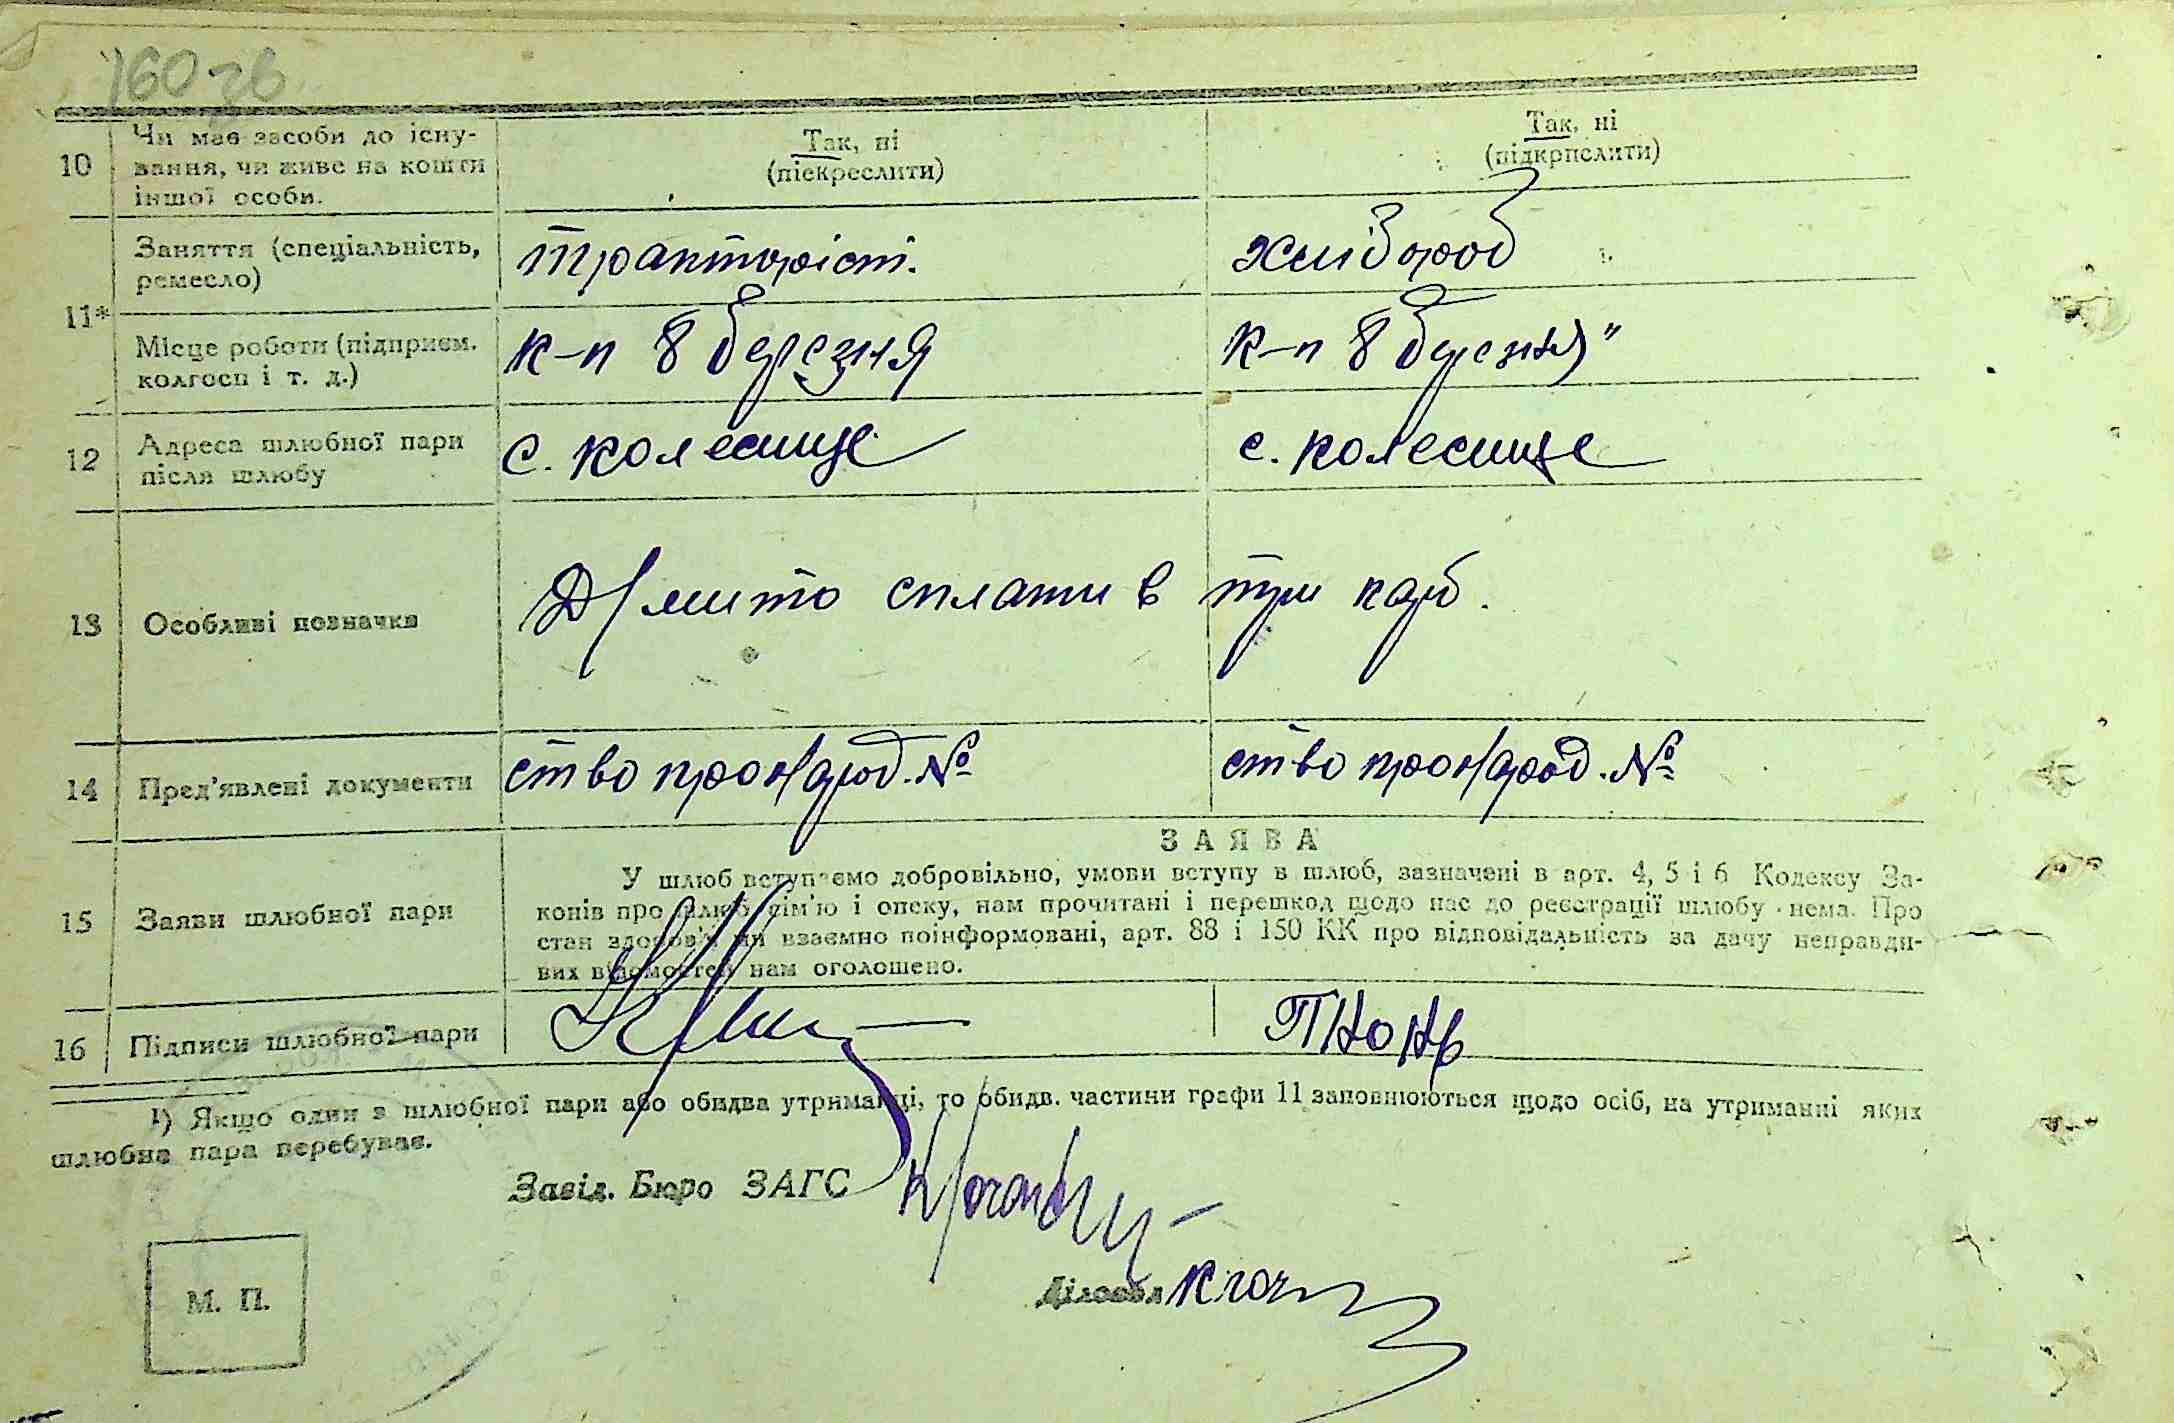 160 зв
10 Чи має засоби до існу-
вання, чи живе на кошти
іншої особи.
Так, ні
(піекреслити)
Так, ні
(підкрпслити)
11*
Заняття (спеціальність,
ремесло)
тракторіст.
хлібороб
Місце роботи (підприєм.
колгосп і т. д.)
к-п 8 березня
к-п 8 березня"
12 Адреса шлюбної пари
після шлюбу
с. колесище
с. колесище
13 Особливі позначки
Д/мито сплатив три карб.
14 Пред'явлені документи
ство про народ. №
ство про народ. №
15 Заяви шлюбної пари
ЗАЯВА
У шлюб вступаємо добровільно, умови вступу в шлюб, зазначені в арт. 4, 5 і 6 Кодексу За-
конів про шлюб, сім'ю і опеку, нам прочитані і перешкод щодо нас до реєстрації шлюбу нема. Про
стан здоров'я ми взаємно поінформовані, арт. 88 і 150 КК про відповідальність за дачу неправди-
вих відомостей нам оголошено.
16 Підписи шлюбної пари
¹) Якщо один з шлюбної пари або обидва утриманці, то обидв. частини графи 11 заповнюються щодо осіб, на утриманні яких
шлюбна пара перебуває.
Завід. Бюро ЗАГС
Діловод
М. П.